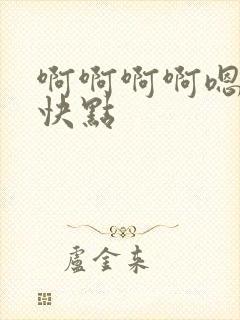 啊啊啊啊嗯
快點
盧金來